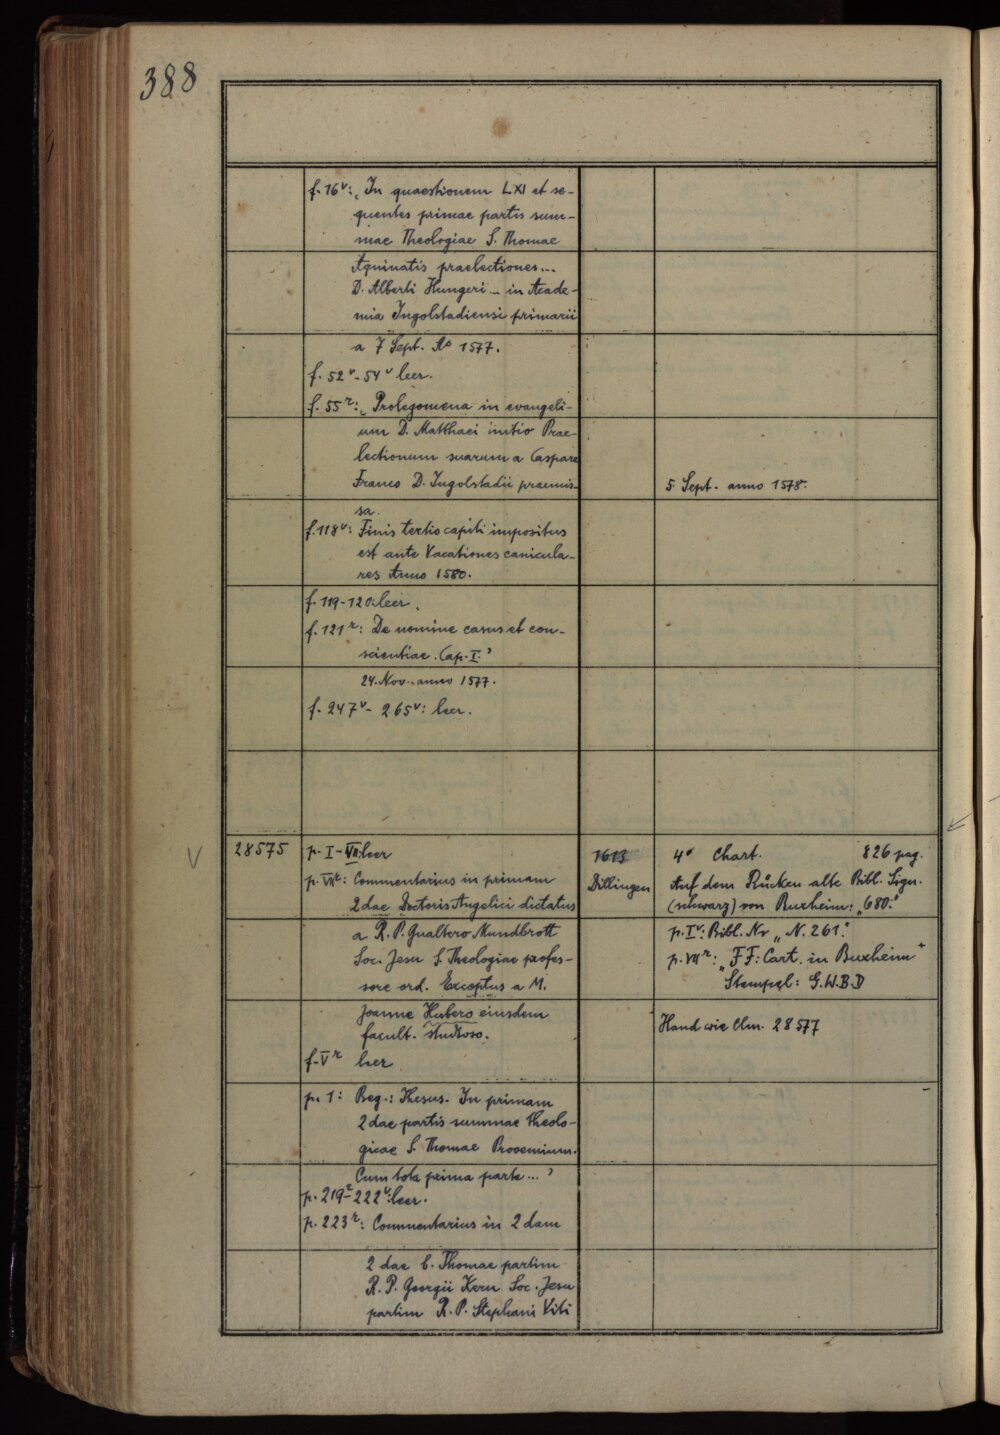 388
f. 16v: „In quaestionem LXI et se-
quentes primae partis sum-
mae Theologiae S. Thomae
Aquinatis praelectiones...
D. Alberti Hungeri ... in Acade-
mia Ingolstadiensi primarii
a 7 Sept. Ao 1577.
f. 52v - 54v leer.
f. 55r: „Prolegomena in evangeli-
um D. Matthaei initio Prae-
lectionum suarum a Caspare
Franco D. Ingolstadii praemis-
sa.
5 Sept. anno 1578.
f. 118v: Finis tertio capiti impositus
est ante Vacationes canicula-
res Anno 1580.
f. 119-120: leer.
f. 121r: De nomine casus et con-
scientiae. Cap. I.'
24. Nov. anno 1577.
f. 247v - 265v: leer.
V
28575
p. I - VII: leer
p. VIIr: Commentarius in primam
2dae Doctoris Angelici dictatus
a R. P. Gualtero Mundbrott
Soc. Jesu S. Theologiae profes-
sore ord. Exceptus a M.
Joanne Hubero eiusdem
facult. studioso.
f. Vr leer
p. 1: Beg.: Ihesus. In primam
2dae partis summae theolo-
gicae S. Thomae Prooemium.
Cum tota prima parte ... '
p. 219r - 222v: leer.
p. 223r: Commentarius in 2dam
2dae b. Thomae partim
R. P. Georgii Kern Soc. Jesu
partim R. P. Stephani Viti
1613
Dillingen
4° Chart. 826 pag.
Auf dem Rücken alte Bibl. Sign.
(schwarz) von Buxheim: „680."
p. Iv: Bibl. Nr „N. 261."
p. VIIr: „FF: Cart. in Buxheim"
Stempel: G.W.B.D
Hand wie Clm. 28577